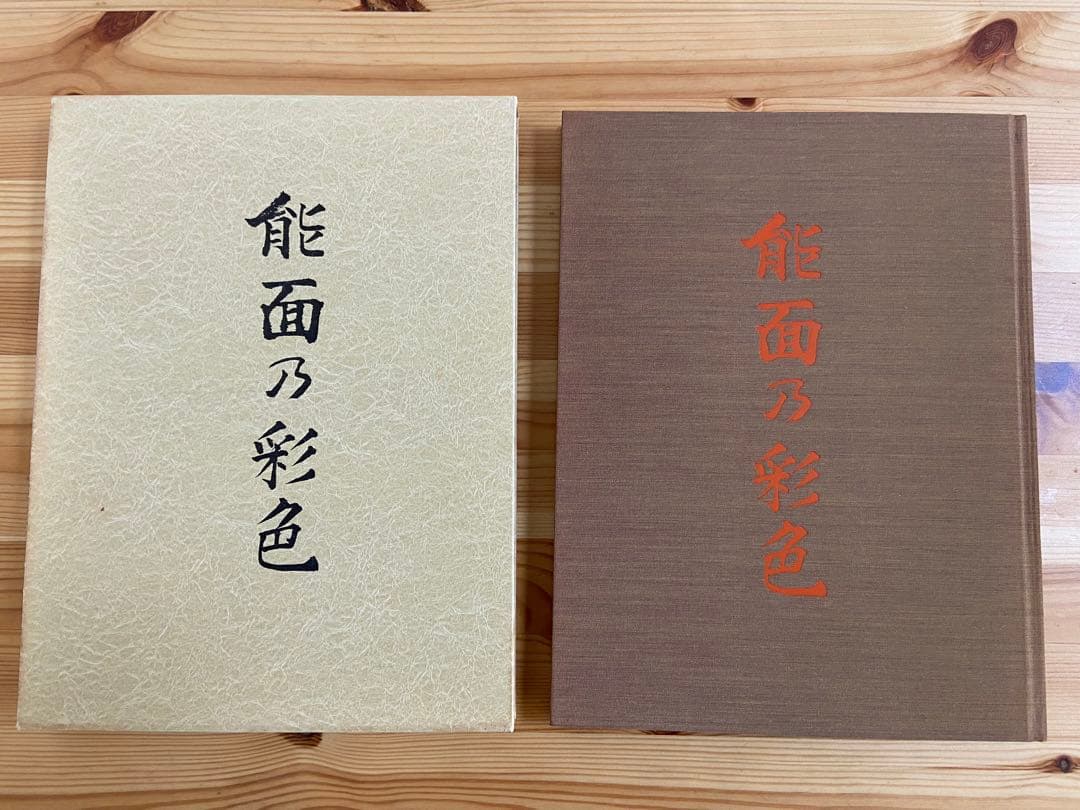 能面乃彩色
能面乃彩色